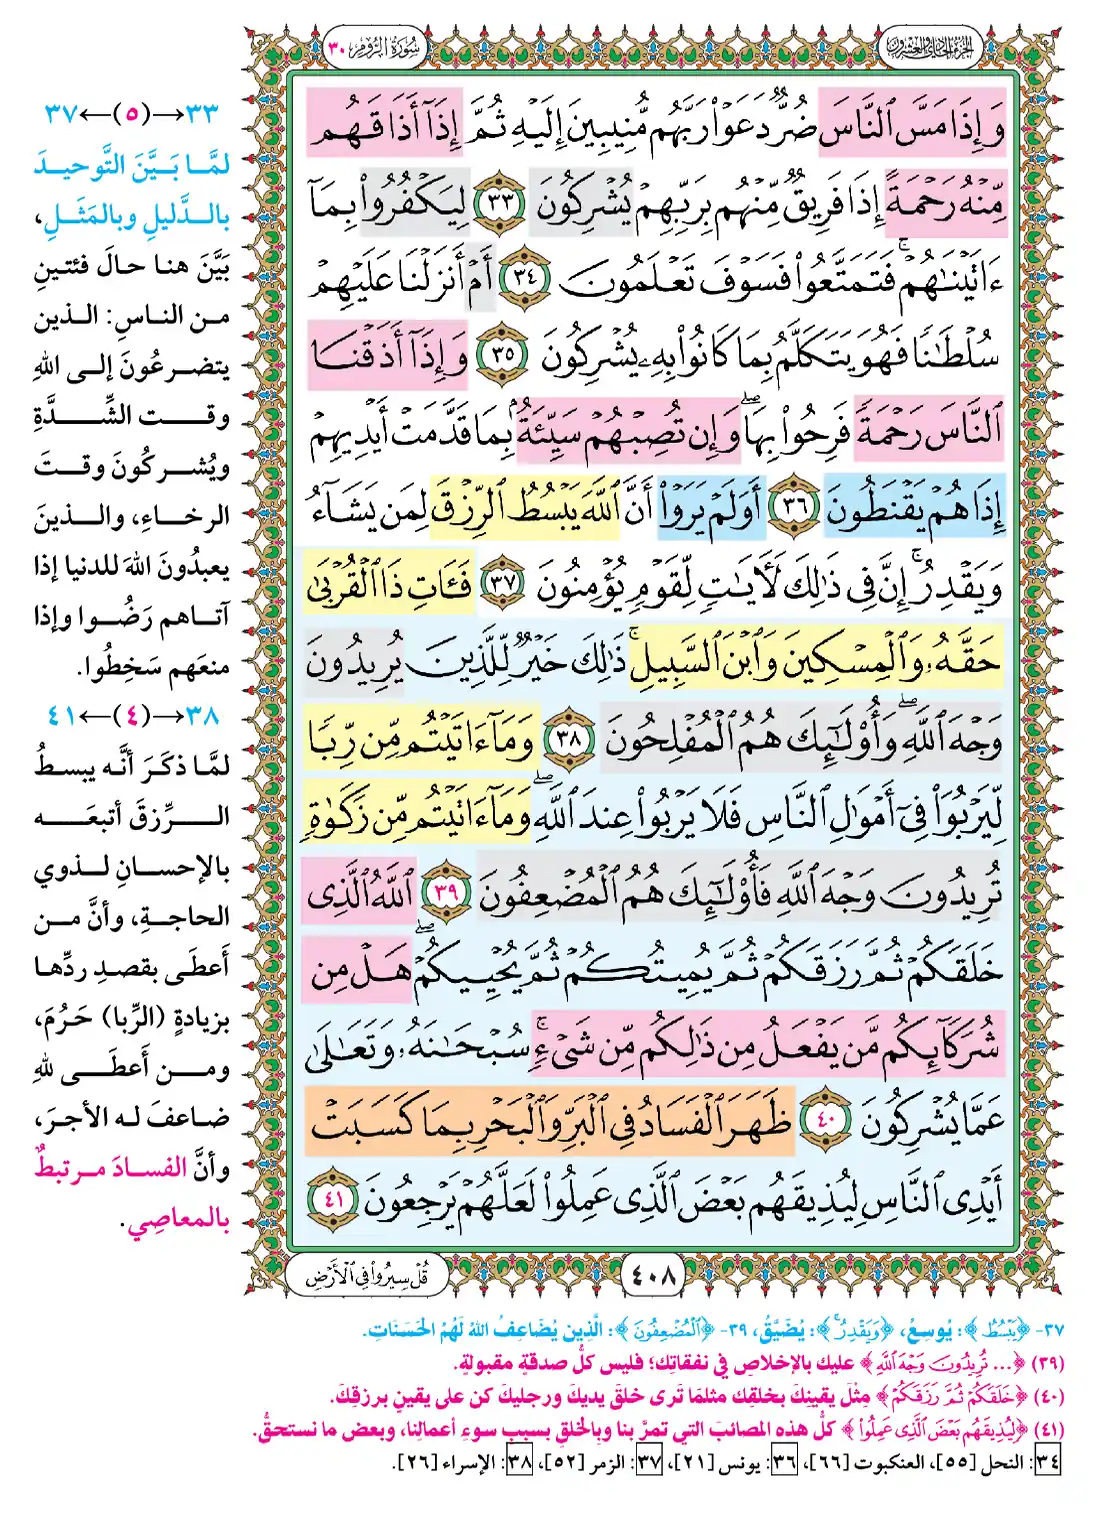 الجزء الحادي والعشرون
سُورَةُ الرُّومِ ٣٠
وَإِذَا مَسَّ ٱلنَّاسَ ضُرٌّ دَعَوْا۟ رَبَّهُم مُّنِيبِينَ إِلَيْهِ ثُمَّ إِذَآ أَذَاقَهُم
مِّنْهُ رَحْمَةً إِذَا فَرِيقٌ مِّنْهُم بِرَبِّهِمْ يُشْرِكُونَ ٣٣ لِيَكْفُرُوا۟ بِمَآ
ءَاتَيْنَٰهُمْ ۚ فَتَمَتَّعُوا۟ فَسَوْفَ تَعْلَمُونَ ٣٤ أَمْ أَنزَلْنَا عَلَيْهِمْ
سُلْطَٰنًا فَهُوَ يَتَكَلَّمُ بِمَا كَانُوا۟ بِهِۦ يُشْرِكُونَ ٣٥ وَإِذَآ أَذَقْنَا
ٱلنَّاسَ رَحْمَةً فَرِحُوا۟ بِهَا ۖ وَإِن تُصِبْهُمْ سَيِّئَةٌۢ بِمَا قَدَّمَتْ أَيْدِيهِمْ
إِذَا هُمْ يَقْنَطُونَ ٣٦ أَوَلَمْ يَرَوْا۟ أَنَّ ٱللَّهَ يَبْسُطُ ٱلرِّزْقَ لِمَن يَشَآءُ
وَيَقْدِرُ ۚ إِنَّ فِى ذَٰلِكَ لَءَايَٰتٍ لِّقَوْمٍ يُؤْمِنُونَ ٣٧ فَـَٔاتِ ذَا ٱلْقُرْبَىٰ
حَقَّهُۥ وَٱلْمِسْكِينَ وَٱبْنَ ٱلسَّبِيلِ ۚ ذَٰلِكَ خَيْرٌ لِّلَّذِينَ يُرِيدُونَ
وَجْهَ ٱللَّهِ ۖ وَأُو۟لَٰٓئِكَ هُمُ ٱلْمُفْلِحُونَ ٣٨ وَمَآ ءَاتَيْتُم مِّن رِّبًا
لِّيَرْبُوَا۟ فِىٓ أَمْوَٰلِ ٱلنَّاسِ فَلَا يَرْبُوا۟ عِندَ ٱللَّهِ ۖ وَمَآ ءَاتَيْتُم مِّن زَكَوٰةٍ
تُرِيدُونَ وَجْهَ ٱللَّهِ فَأُو۟لَٰٓئِكَ هُمُ ٱلْمُضْعِفُونَ ٣٩ ٱللَّهُ ٱلَّذِى
خَلَقَكُمْ ثُمَّ رَزَقَكُمْ ثُمَّ يُمِيتُكُمْ ثُمَّ يُحْيِيكُمْ ۖ هَلْ مِن
شُرَكَآئِكُم مَّن يَفْعَلُ مِن ذَٰلِكُم مِّن شَىْءٍ ۚ سُبْحَٰنَهُۥ وَتَعَٰلَىٰ
عَمَّا يُشْرِكُونَ ٤٠ ظَهَرَ ٱلْفَسَادُ فِى ٱلْبَرِّ وَٱلْبَحْرِ بِمَا كَسَبَتْ
أَيْدِى ٱلنَّاسِ لِيُذِيقَهُم بَعْضَ ٱلَّذِى عَمِلُوا۟ لَعَلَّهُمْ يَرْجِعُونَ ٤١
٤٠٨
قُلْ سِيرُوا۟ فِى ٱلْأَرْضِ
٣٣→(٥)←٣٧
لمَّا بَيَّنَ التَّوحيدَ
بالدَّليلِ وبالمَثَلِ،
بَيَّنَ هنا حالَ فئتينِ
من الناسِ: الذين
يتضرعُونَ إلى اللهِ
وقت الشِّدَّةِ
ويُشركُونَ وقتَ
الرخاءِ، والذينَ
يعبدُونَ اللهَ للدنيا إذا
آتاهم رَضُوا وإذا
منعَهم سَخِطُوا.
٣٨→(٤)←٤١
لمَّا ذكَرَ أنَّه يبسطُ
الرِّزقَ أتبعَه
بالإحسانِ لذوي
الحاجةِ، وأنَّ من
أَعطَى بقصدِ ردِّها
بزيادةٍ (الرِّبا) حَرُمَ،
ومن أَعطَى للهِ
ضاعفَ له الأجرَ،
وأنَّ الفسادَ مرتبطٌ
بالمعاصِي.
٣٧- ﴿يَبْسُطُ﴾: يُوسِعُ، ﴿وَيَقْدِرُ ۚ﴾: يُضَيِّقُ، ٣٩- ﴿ٱلْمُضْعِفُونَ﴾: الَّذِينَ يُضَاعِفُ اللهُ لَهُمُ الْحَسَنَاتِ.
(٣٩) ﴿... تُرِيدُونَ وَجْهَ ٱللَّهِ﴾ عليك بالإخلاصِ في نفقاتِك؛ فليس كلُّ صدقةٍ مقبولةٍ.
(٤٠) ﴿خَلَقَكُمْ ثُمَّ رَزَقَكُمْ﴾ مِثْلَ يقينكَ بخلقِك مثلمَا تَرى خلقَ يديكَ ورجليكَ كن على يقينٍ برزقِكَ.
(٤١) ﴿لِيُذِيقَهُم بَعْضَ ٱلَّذِى عَمِلُوا۟﴾ كلُّ هذه المصائبَ التي تمرُّ بنا وبِالخلقِ بسببِ سوءِ أعمالِنا، وبعض ما نستحقُّ.
٣٤: النحل [٥٥]، العنكبوت [٦٦]، ٣٦: يونس [٢١]، ٣٧: الزمر [٥٢]، ٣٨: الإسراء [٢٦].